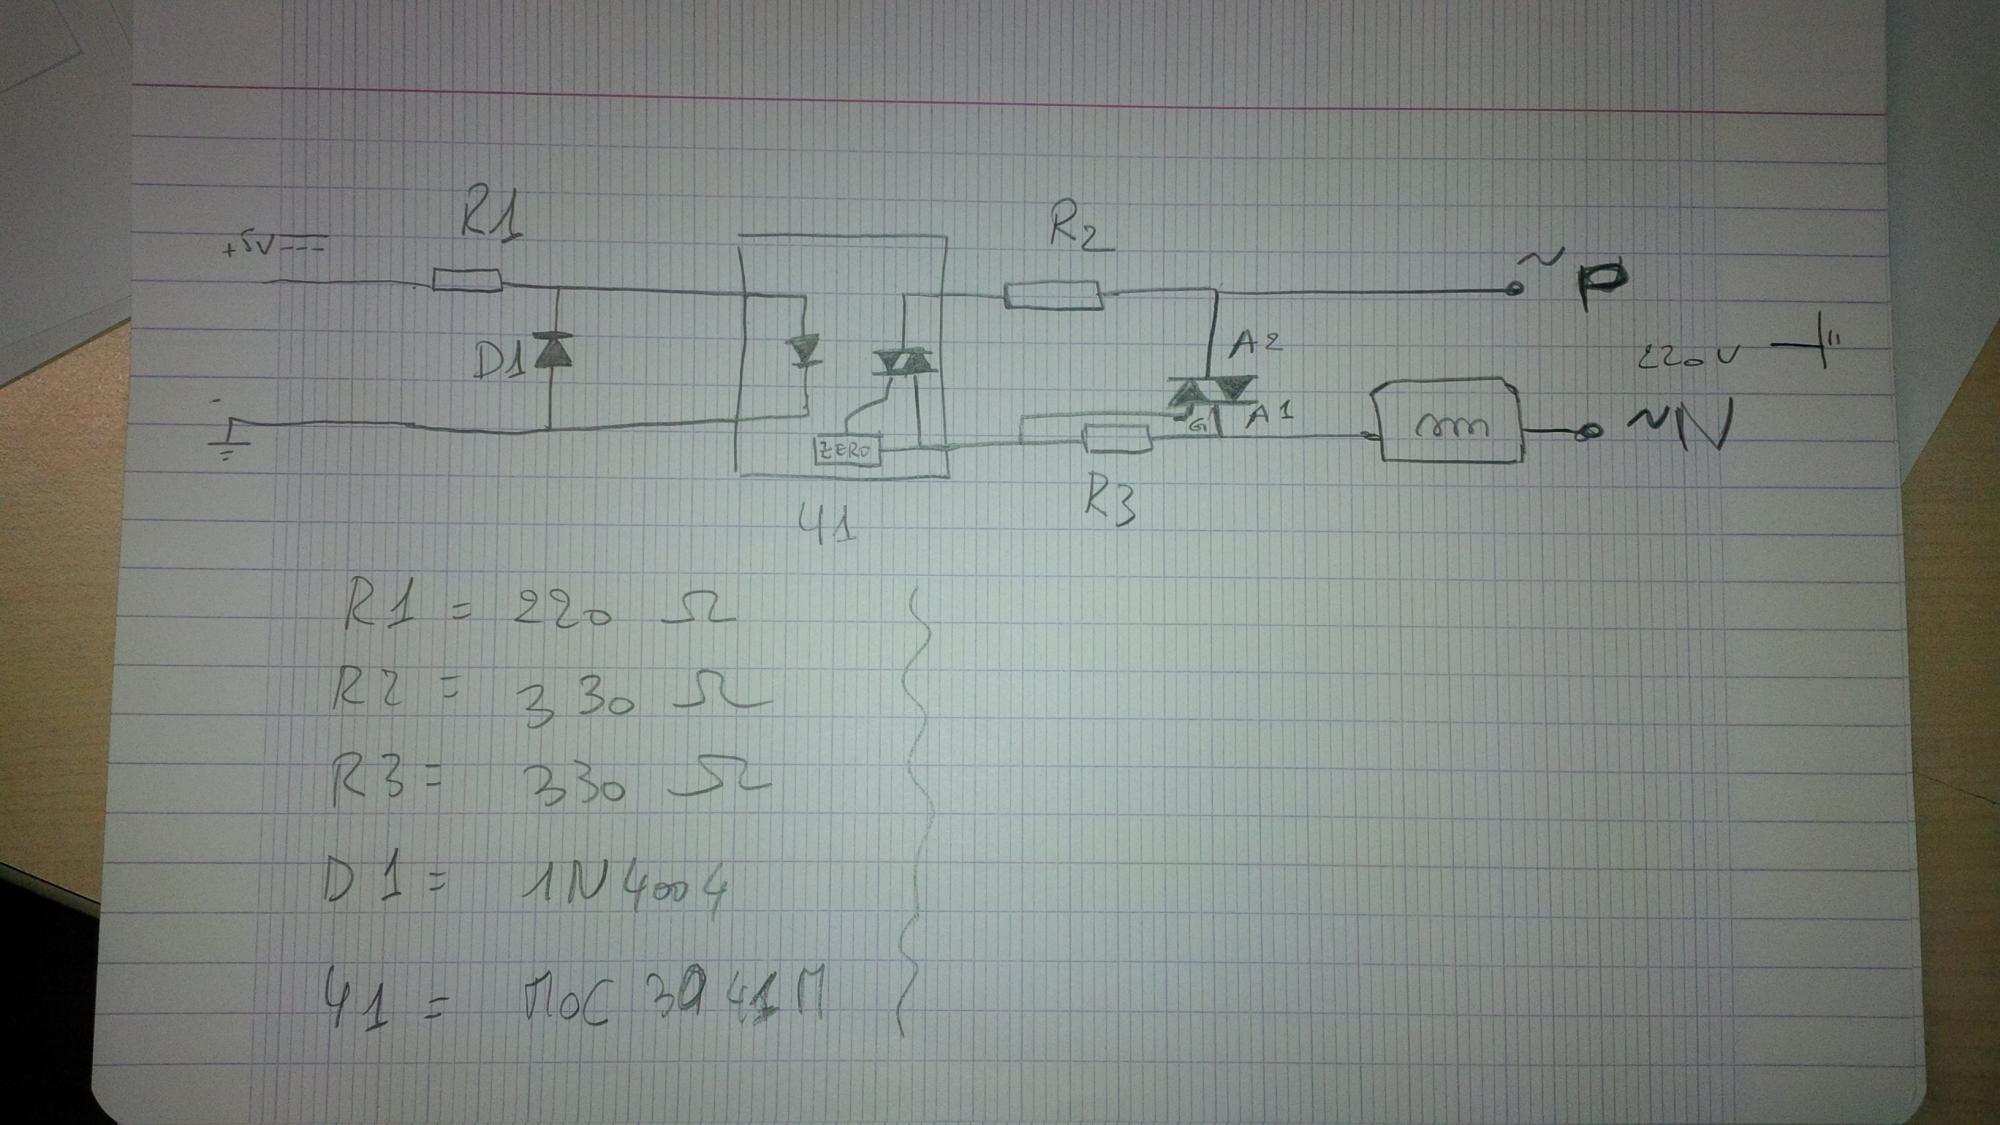 R1
R2
+5V
~ P
D1
A2
220V
-
G
A1
ZERO
~N
R3
U1
R1 = 220 Ω
R2 = 330 Ω
R3 = 330 Ω
D1 = 1N4004
U1 = MOC 3041M